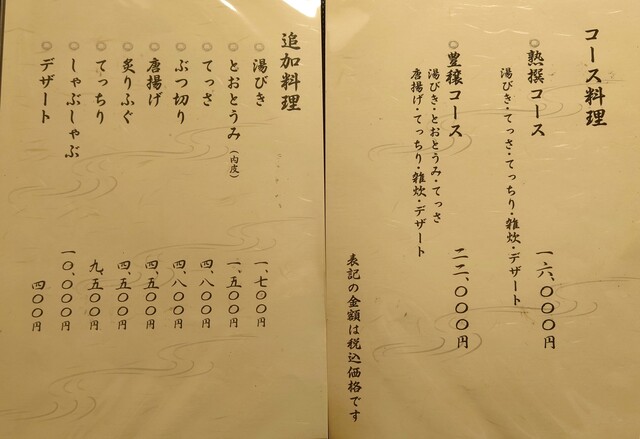 コース料理
◎熟撰コース
湯びき・てっさ・てっちり・雑炊・デザート
一六、〇〇〇円
◎豊穣コース
湯びき・とおとうみ・てっさ
唐揚げ・てっちり・雑炊・デザート
二二、〇〇〇円
表記の金額は税込価格です
追加料理
◎湯びき 一、七〇〇円
◎とおとうみ(内皮) 一、五〇〇円
◎てっさ 四、八〇〇円
◎ぶつ切り 四、八〇〇円
◎唐揚げ 四、五〇〇円
◎炙りふぐ 四、五〇〇円
◎てっちり 九、五〇〇円
◎しゃぶしゃぶ 一〇、〇〇〇円
◎デザート 四〇〇円